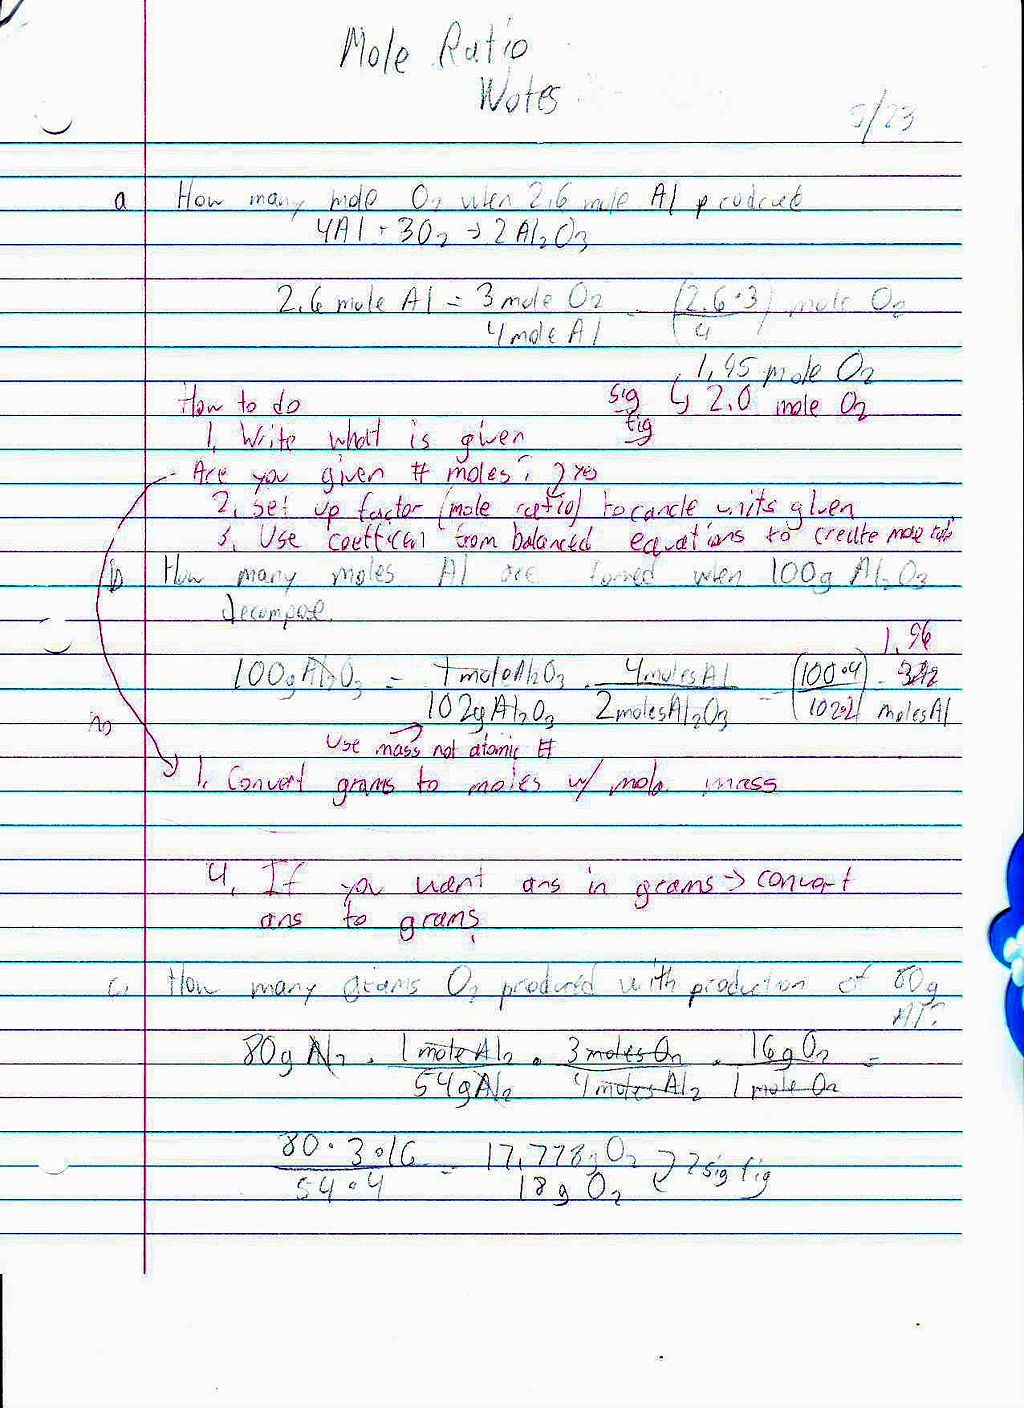 Mole Ratio
Notes
5/23
a How many mole O₂ when 2.6 mole Al produced
4Al + 3O₂ → 2Al₂O₃
2.6 mole Al = 3 mole O₂ / 4 mole Al = (2.6·3 / 4) mole O₂
1.95 mole O₂
sig fig ↳ 2.0 mole O₂
How to do
1. Write what is given
- Are you given # moles? yes
2. Set up factor (mole ratio) to cancle units given
3. Use coefficen from balanced equations to create mole ratio
b How many moles Al are formed when 100g Al₂O₃
decompose.
100g Al₂O₃ = 1 mole Al₂O₃ / 102g Al₂O₃ · 4 moles Al / 2 moles Al₂O₃ = (100·4 / 102·2) = 1.96 moles Al
Use mass not atomic #
no
1. Convert grams to moles w/ molar mass
4. If you want ans in grams → convert
ans to grams
c. How many grams O₂ produced with production of 80g
Al?
80g Al₂ · 1 mole Al₂ / 54g Al₂ · 3 moles O₂ / 4 moles Al₂ · 16g O₂ / 1 mole O₂ =
80·3·16 / 54·4 = 17.778g O₂
18g O₂ 2 sig fig